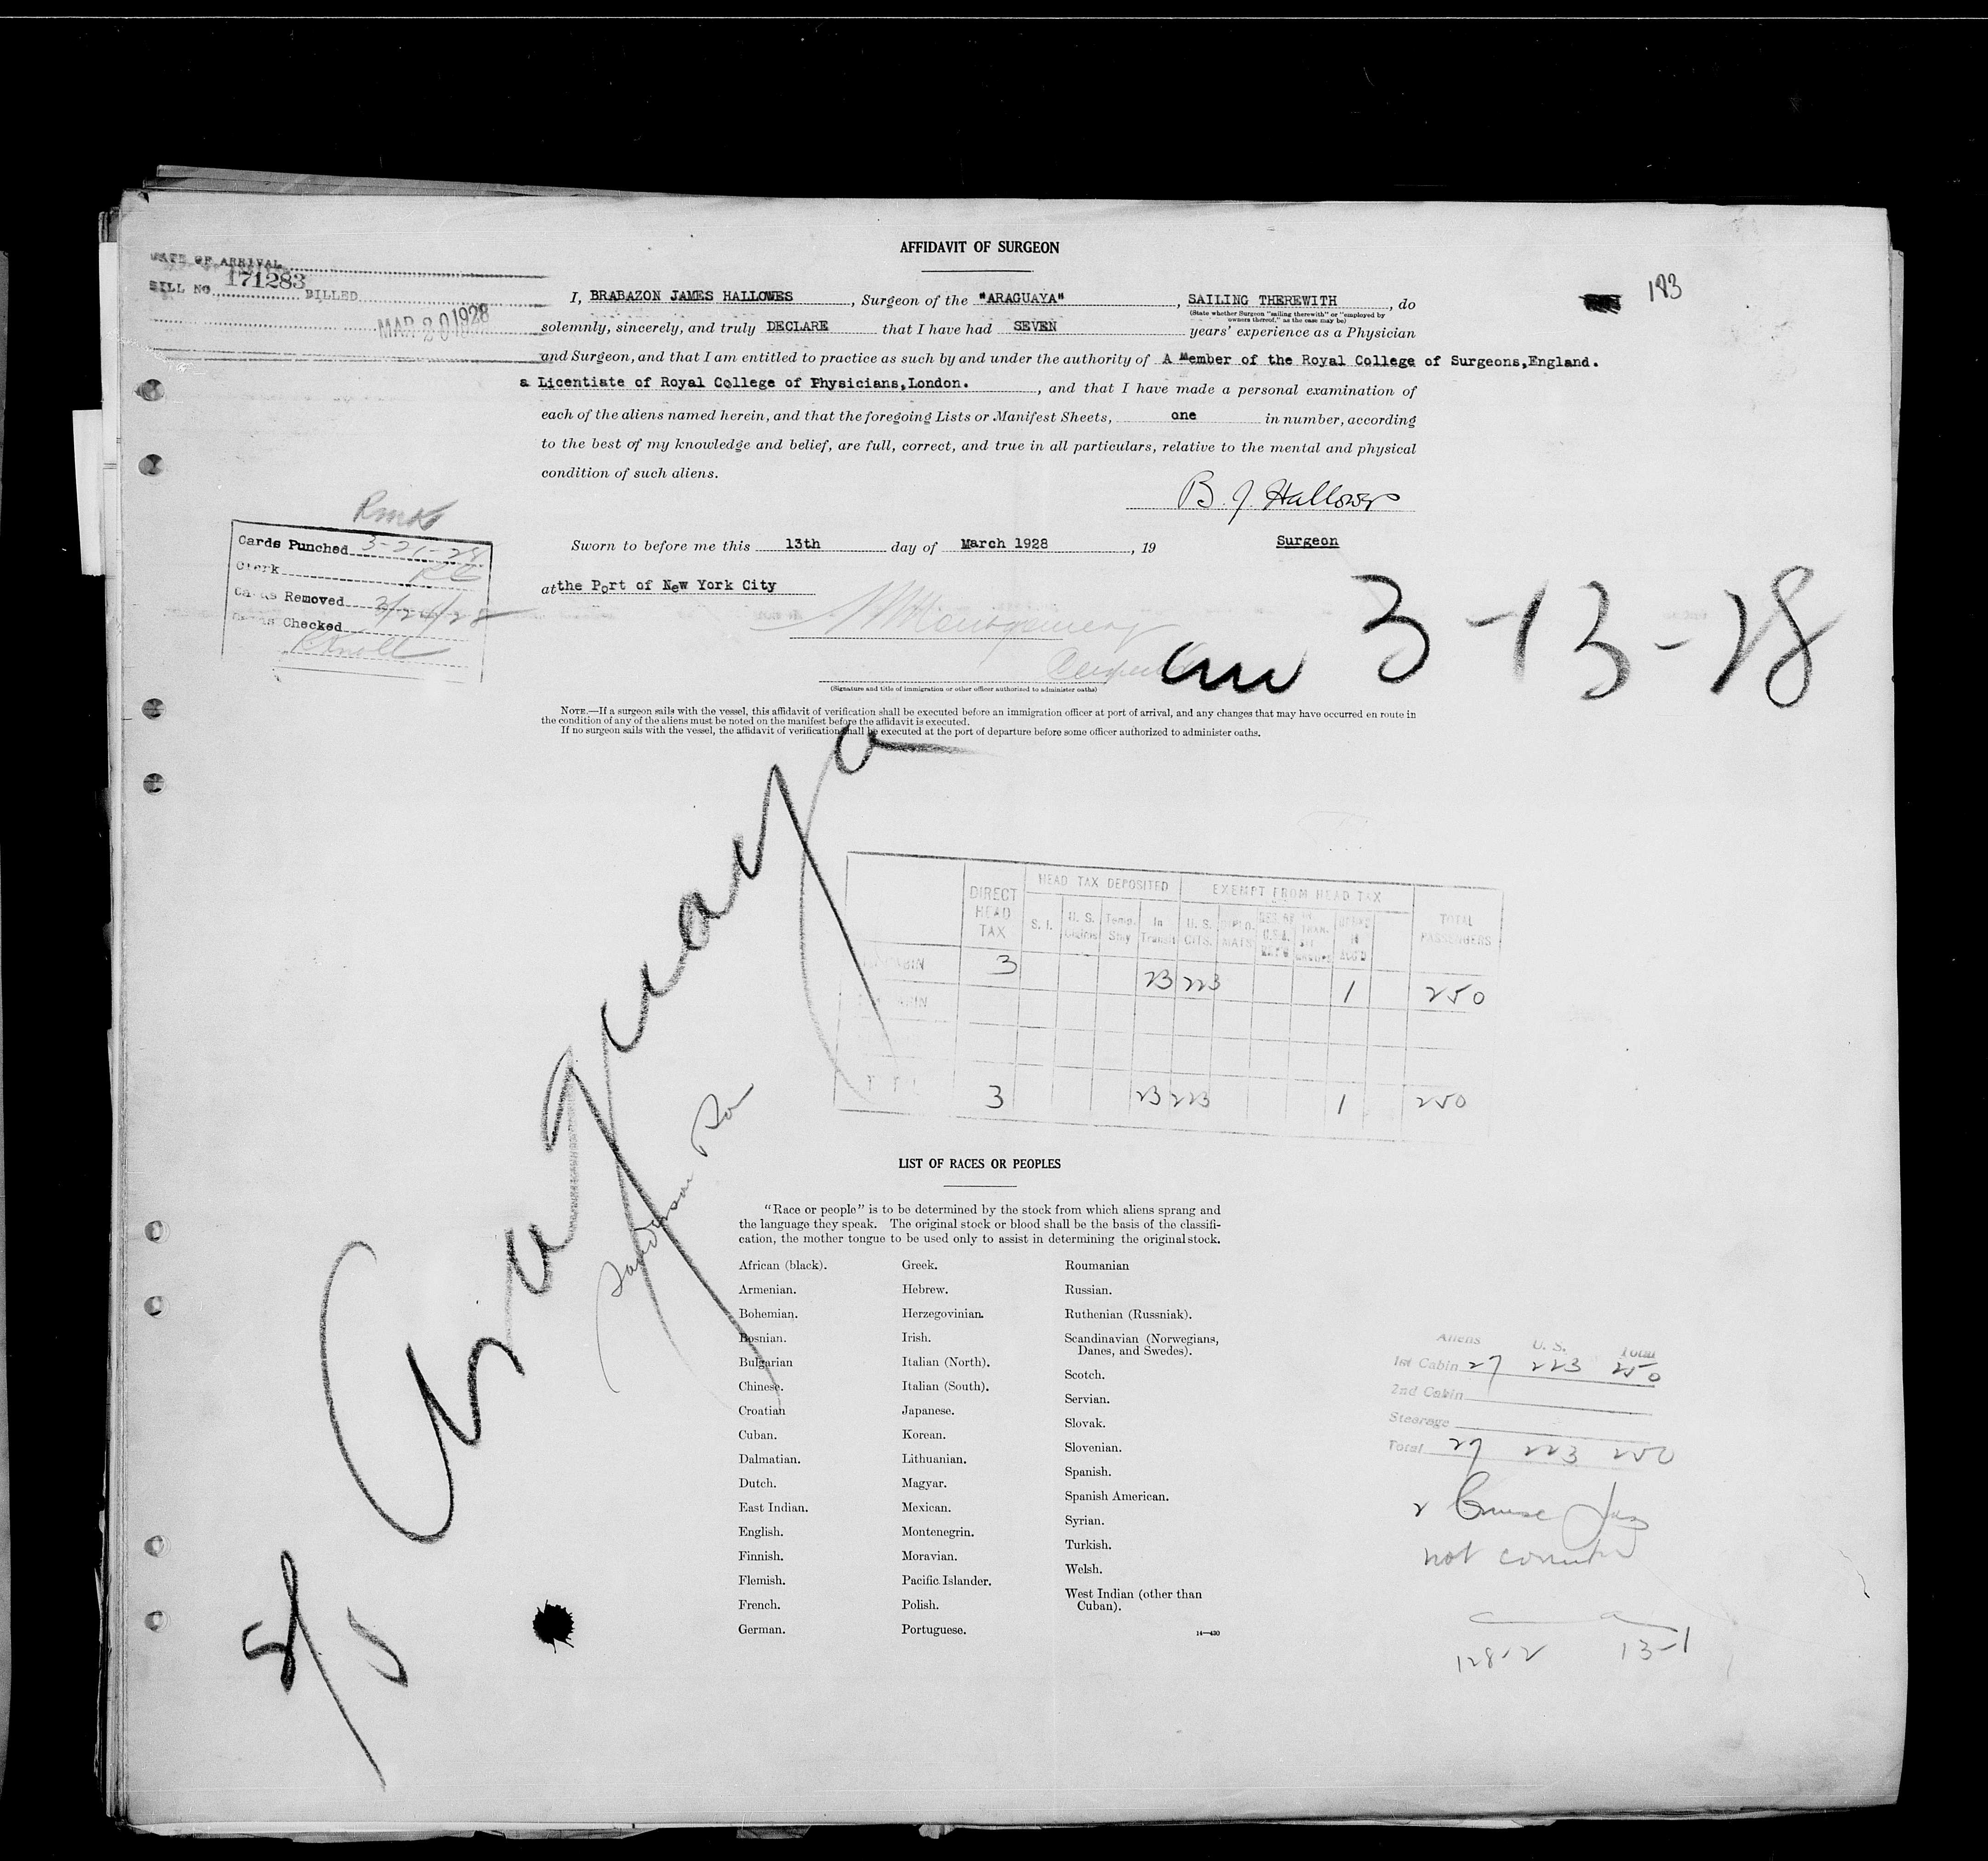 AFFIDAVIT OF SURGEON
DATE OF ARRIVAL
BILL NO 171283 BILLED
MAR 20 1928
183
I, BRABAZON JAMES HALLOWES, Surgeon of the "ARAGUAYA", SAILING THEREWITH, do
(State whether Surgeon "sailing therewith" or "employed by
owners thereof," as the case may be)
solemnly, sincerely, and truly DECLARE that I have had SEVEN years' experience as a Physician
and Surgeon, and that I am entitled to practice as such by and under the authority of A Member of the Royal College of Surgeons,England.
a Licentiate of Royal College of Physicians,London., and that I have made a personal examination of
each of the aliens named herein, and that the foregoing Lists or Manifest Sheets, one in number, according
to the best of my knowledge and belief, are full, correct, and true in all particulars, relative to the mental and physical
condition of such aliens.
B. J. Hallowes
Sworn to before me this 13th day of March 1928, 19
Surgeon
at the Port of New York City
Montgomery
(Signature and title of immigration or other officer authorized to administer oaths)
Cards Punched 3-21-28
Clerk
Cards Removed 3/24/28
Cards Checked
3-13-28
NOTE.—If a surgeon sails with the vessel, this affidavit of verification shall be executed before an immigration officer at port of arrival, and any changes that may have occurred en route in
the condition of any of the aliens must be noted on the manifest before the affidavit is executed.
If no surgeon sails with the vessel, the affidavit of verification shall be executed at the port of departure before some officer authorized to administer oaths.
S/S Araguaya
Sanderson & Son
DIRECT HEAD TAX
HEAD TAX DEPOSITED
EXEMPT FROM HEAD TAX
TOTAL PASSENGERS
S. I. U. S. Claims Temp. Stay In Transit U. S. CITS.
CABIN 3 23 223 1 250
CABIN
3 23 223 1 250
LIST OF RACES OR PEOPLES
"Race or people" is to be determined by the stock from which aliens sprang and
the language they speak. The original stock or blood shall be the basis of the classifi-
cation, the mother tongue to be used only to assist in determining the original stock.
African (black).
Armenian.
Bohemian.
Bosnian.
Bulgarian
Chinese.
Croatian
Cuban.
Dalmatian.
Dutch.
East Indian.
English.
Finnish.
Flemish.
French.
German.
Greek.
Hebrew.
Herzegovinian.
Irish.
Italian (North).
Italian (South).
Japanese.
Korean.
Lithuanian.
Magyar.
Mexican.
Montenegrin.
Moravian.
Pacific Islander.
Polish.
Portuguese.
Roumanian
Russian.
Ruthenian (Russniak).
Scandinavian (Norwegians,
Danes, and Swedes).
Scotch.
Servian.
Slovak.
Slovenian.
Spanish.
Spanish American.
Syrian.
Turkish.
Welsh.
West Indian (other than
Cuban).
14—430
Aliens U. S. Total
1st Cabin 27 223 250
2nd Cabin
Steerage
Total 27 223 250
Cruise
not
13-1